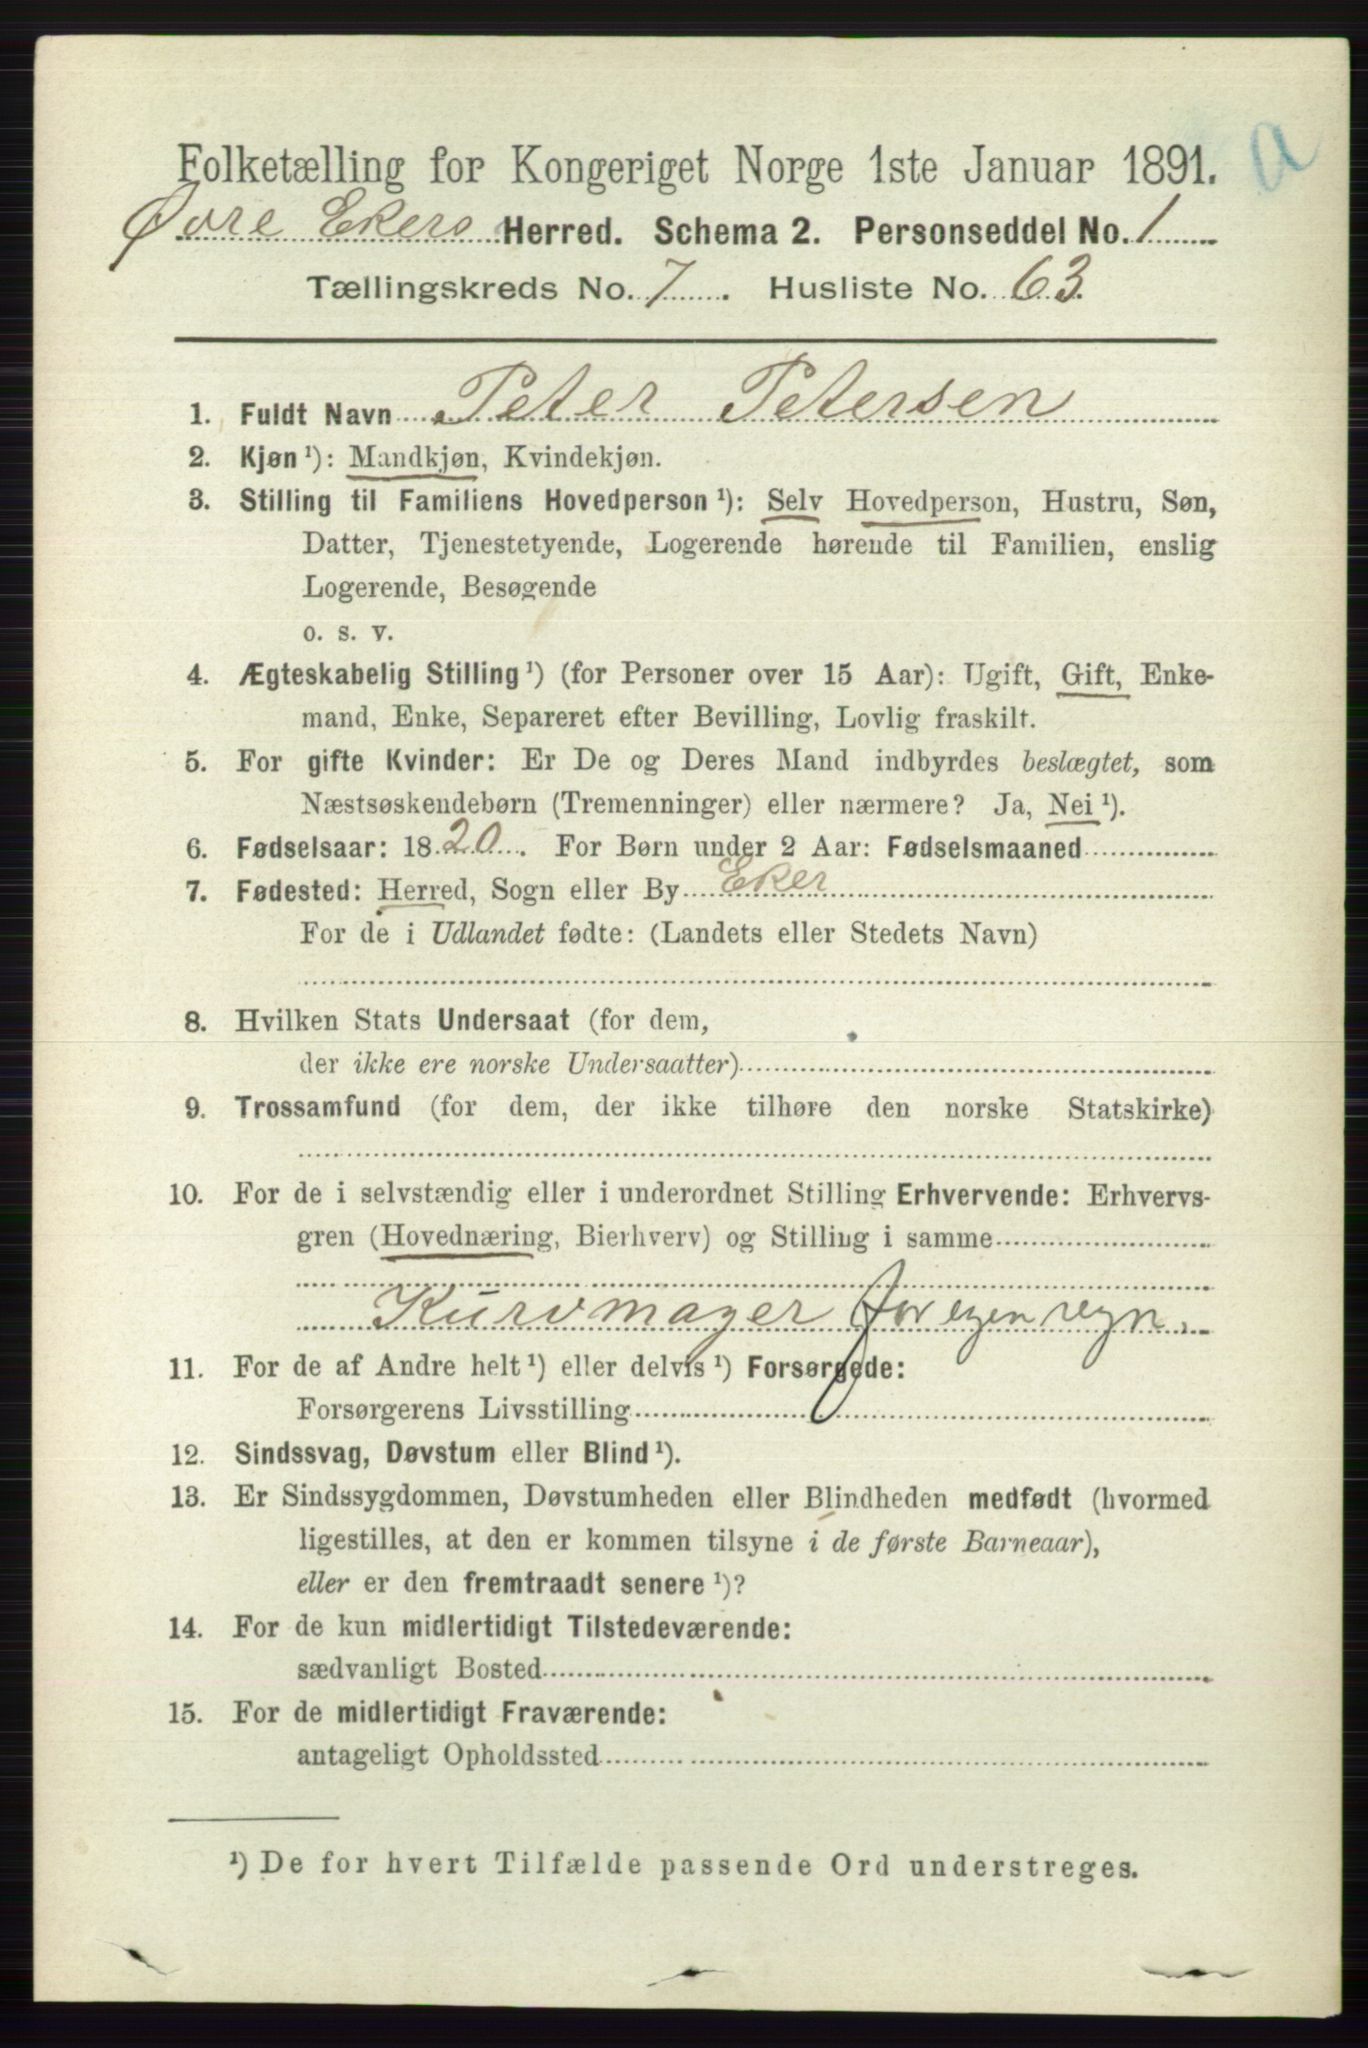 a
Folketælling for Kongeriget Norge 1ste Januar 1891.
Øvre Ekers Herred. Schema 2. Personseddel No. 1
Tællingskreds No. 7. Husliste No. 63.
1. Fuldt Navn Peter Petersen
2. Kjøn ¹): Mandkjøn, Kvindekjøn.
3. Stilling til Familiens Hovedperson ¹): Selv Hovedperson, Hustru, Søn,
Datter, Tjenestetyende, Logerende hørende til Familien, enslig
Logerende, Besøgende
o. s. v.
4. Ægteskabelig Stilling ¹) (for Personer over 15 Aar): Ugift, Gift, Enke-
mand, Enke, Separeret efter Bevilling, Lovlig fraskilt.
5. For gifte Kvinder: Er De og Deres Mand indbyrdes beslægtet, som
Næstsøskendebørn (Tremenninger) eller nærmere? Ja, Nei ¹).
6. Fødselsaar: 1820. For Børn under 2 Aar: Fødselsmaaned
7. Fødested: Herred, Sogn eller By Eker
For de i Udlandet fødte: (Landets eller Stedets Navn)
8. Hvilken Stats Undersaat (for dem,
der ikke ere norske Undersaatter)
9. Trossamfund (for dem, der ikke tilhøre den norske Statskirke)
10. For de i selvstændig eller i underordnet Stilling Erhvervende: Erhvervs-
gren (Hovednæring, Bierhverv) og Stilling i samme
Kurvmager for egen regn.
11. For de af Andre helt ¹) eller delvis ¹) Forsørgede:
Forsørgerens Livsstilling
12. Sindssvag, Døvstum eller Blind ¹).
13. Er Sindssygdommen, Døvstumheden eller Blindheden medfødt (hvormed
ligestilles, at den er kommen tilsyne i de første Barneaar),
eller er den fremtraadt senere ¹)?
14. For de kun midlertidigt Tilstedeværende:
sædvanligt Bosted
15. For de midlertidigt Fraværende:
antageligt Opholdssted
¹) De for hvert Tilfælde passende Ord understreges.